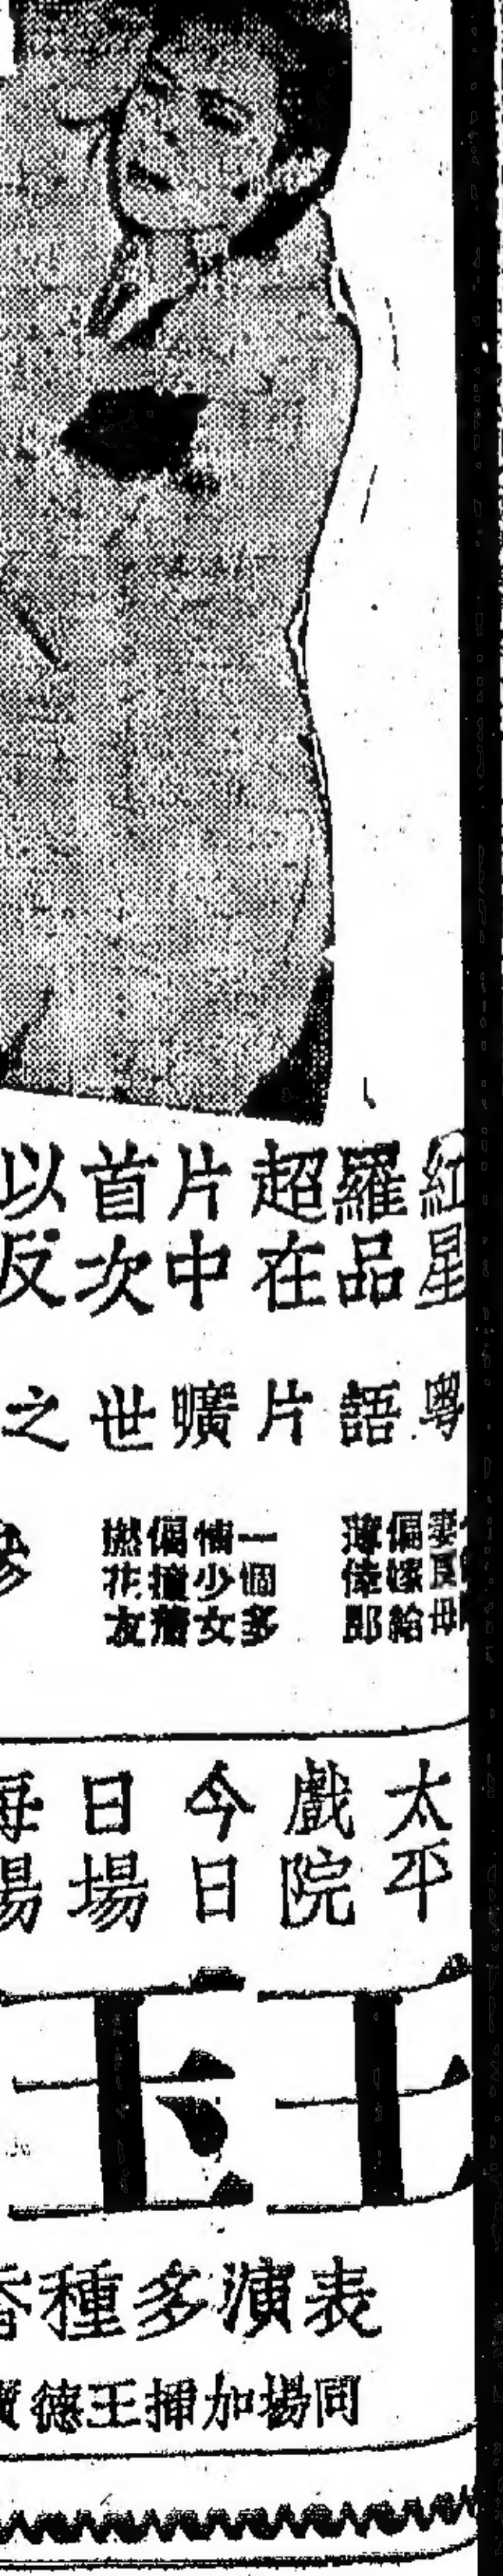 紅星羅品超在片中首次以反
粵語片曠世之
妻良母
偏嫁給
薄倖郎
一個多
情少女
偏撞着
撚花友
太平戲院今日日場每場
王玉
表演多種
同場加插王德